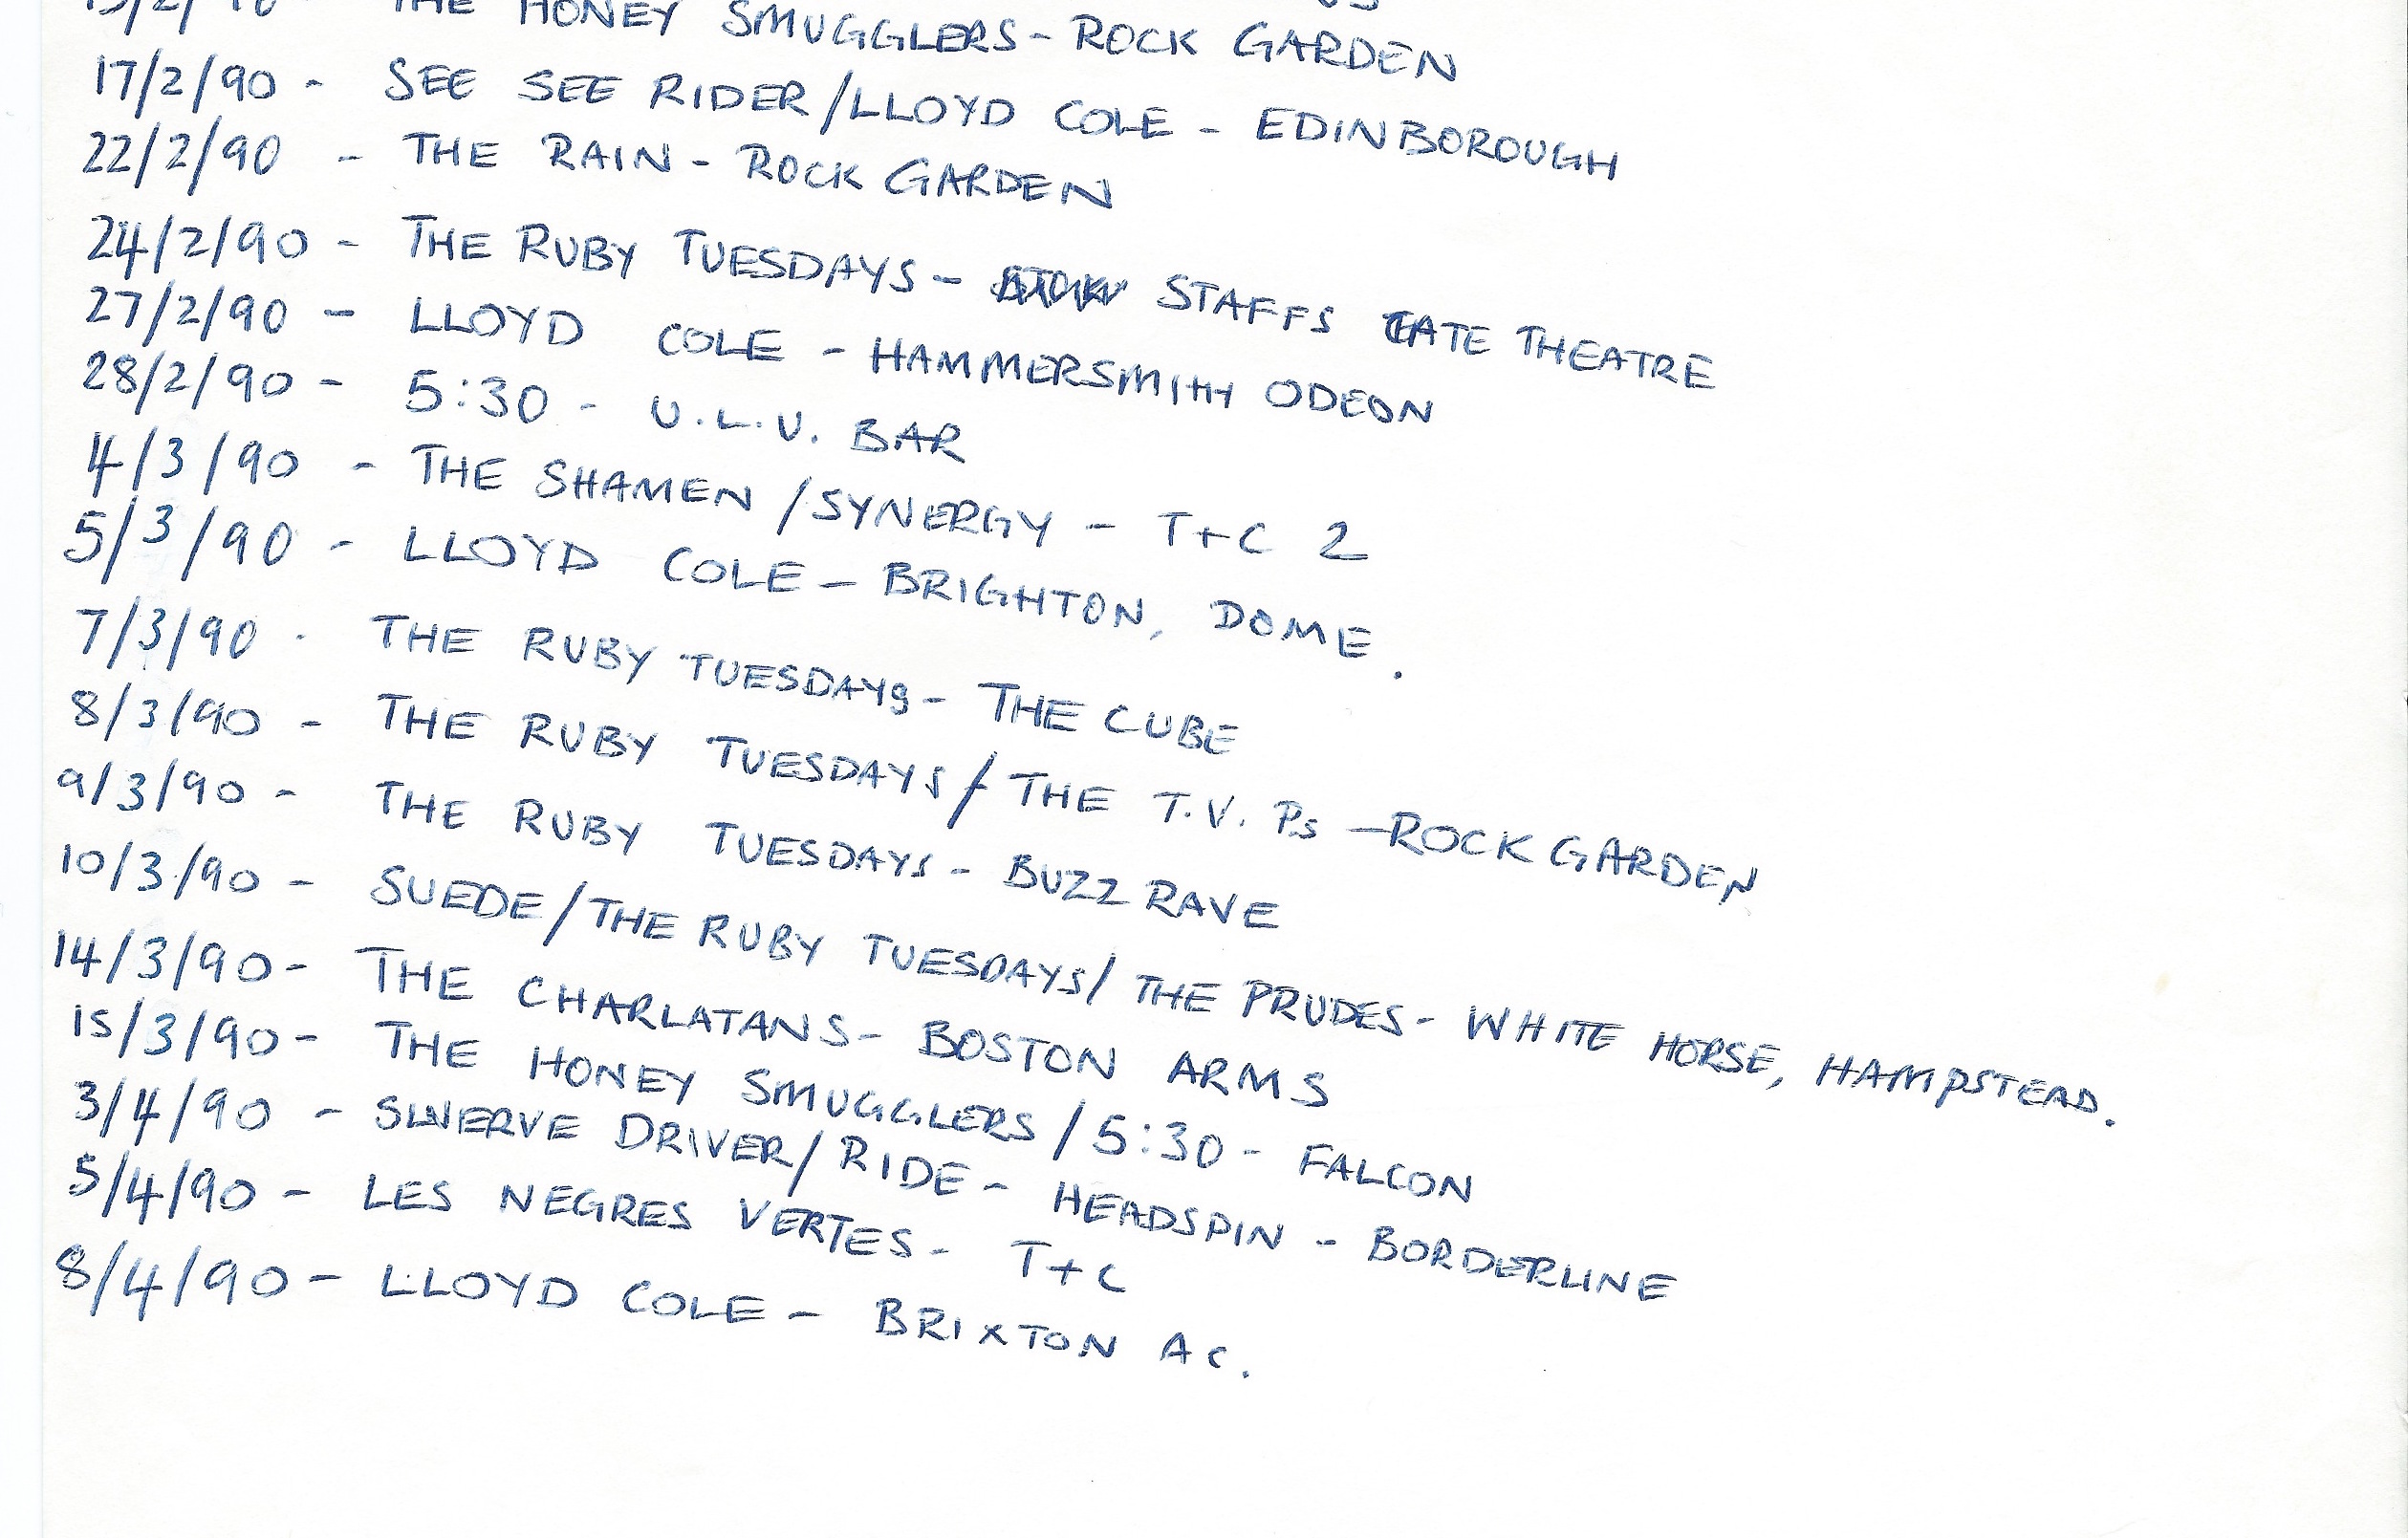 THE HONEY SMUGGLERS - ROCK GARDEN
17/2/90 - SEE SEE RIDER/LLOYD COLE - EDINBOROUGH
22/2/90 - THE RAIN - ROCK GARDEN
24/2/90 - THE RUBY TUESDAYS - STAFFS TATE THEATRE
27/2/90 - LLOYD COLE - HAMMERSMITH ODEON
28/2/90 - 5:30 - U.L.U. BAR
4/3/90 - THE SHAMEN /SYNERGY - T+C 2
5/3/90 - LLOYD COLE - BRIGHTON, DOME.
7/3/90 - THE RUBY TUESDAYS - THE CUBE
8/3/90 - THE RUBY TUESDAYS / THE T.V. Ps - ROCK GARDEN
9/3/90 - THE RUBY TUESDAYS - BUZZ RAVE
10/3/90 - SUEDE/THE RUBY TUESDAYS/ THE PRUDES - WHITE HORSE, HAMPSTEAD.
14/3/90 - THE CHARLATANS - BOSTON ARMS
15/3/90 - THE HONEY SMUGGLERS / 5:30 - FALCON
3/4/90 - SWERVE DRIVER/ RIDE - HEADSPIN - BORDERLINE
5/4/90 - LES NEGRES VERTES - T+C
8/4/90 - LLOYD COLE - BRIXTON AC.